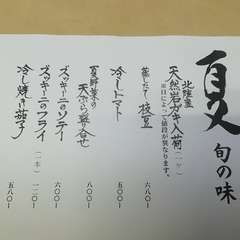 夏 旬の味
北陸産
天然岩ガキ入荷(一ヶ)
※日によって値段が異なります。
蒸したて 枝豆 六八〇-
冷しトマト 五〇〇-
夏野菜の
天ぷら盛り合せ 八〇〇-
ズッキーニのソテー 六〇〇-
ズッキーニのフライ(一本) 一二〇-
冷し焼き茄子 五八〇-